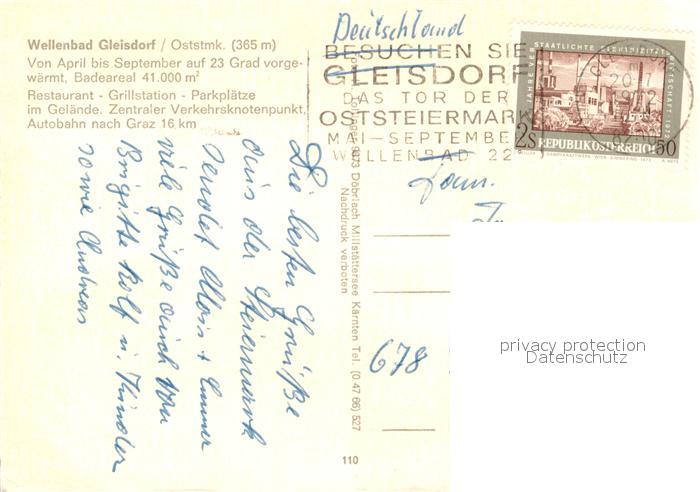 Wellenbad Gleisdorf / Oststmk. (365 m)
Von April bis September auf 23 Grad vorge-
wärmt, Badeareal 41.000 m²
Restaurant - Grillstation - Parkplätze
im Gelände. Zentraler Verkehrsknotenpunkt,
Autobahn nach Graz 16 km
Deutschland
BESUCHEN SIE
GLEISDORF
DAS TOR DER
OSTSTEIERMARK
MAI-SEPTEMBER
WELLENBAD 22
2S
50
REPUBLIK ÖSTERREICH
Die besten Grüße
aus der Steiermark
sendet Alois +
viele Grüße auch von
Brigitte Rolf u. Kinder
sowie Andreas
9873 Döbriach Millstättersee Kärnten Tel. (0 47 66) 527
Nachdruck verboten
Fam.
678
110
privacy protection
Datenschutz